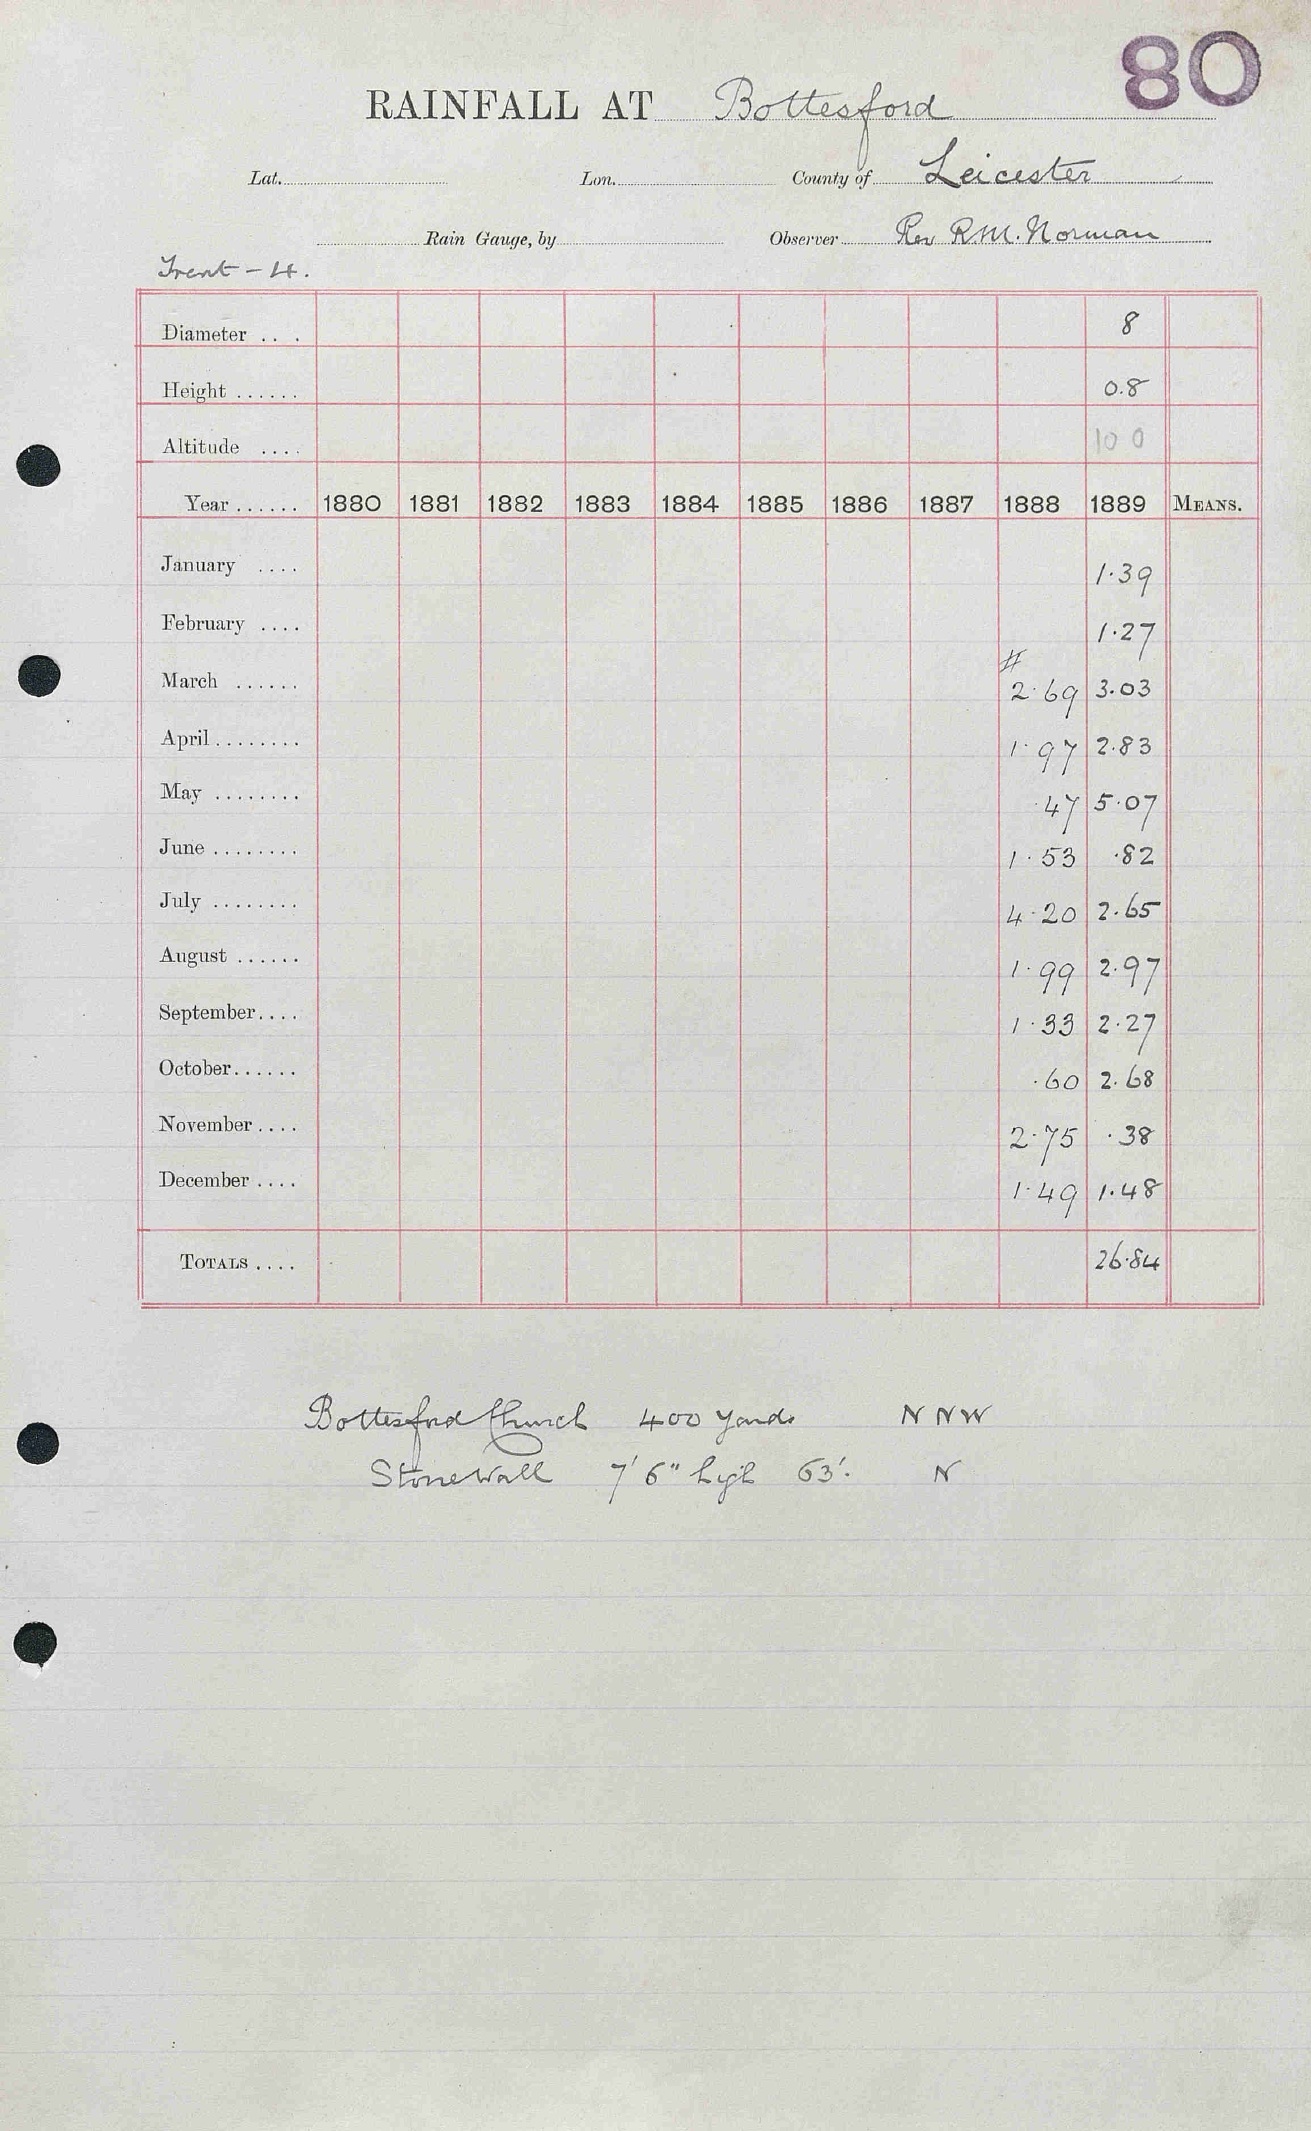 80
RAINFALL AT Bottesford
Lat. Lon. County of Leicester
Rain Gauge, by Observer Rev R.M. Norman
Trent - 4.
Diameter .. . 8
Height ...... 0.8
Altitude .... 100
Year ...... 1880 1881 1882 1883 1884 1885 1886 1887 1888 1889 MEANS.
January .... 1.39
February .... 1.27
#
March ...... 2.69 3.03
April ........ 1.97 2.83
May ........ .47 5.07
June ........ 1.53 .82
July ........ 4.20 2.65
August ...... 1.99 2.97
September .... 1.33 2.27
October ...... .60 2.68
November .... 2.75 .38
December .... 1.49 1.48
TOTALS .... 26.84
Bottesford Church 400 yards N N W
Stone Wall 7' 6" high 63'. N